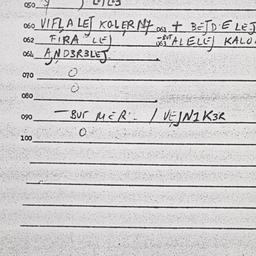 050
060 VIFLALEJ KOLERMZ 061 + BEJDELEJ
062 FIRA LEJ 063 -BUT ALELEJ KALO
064 AND3R3LEJ
070 O
080 O
090 - BUT MER. / VEJN1K3R
100 O